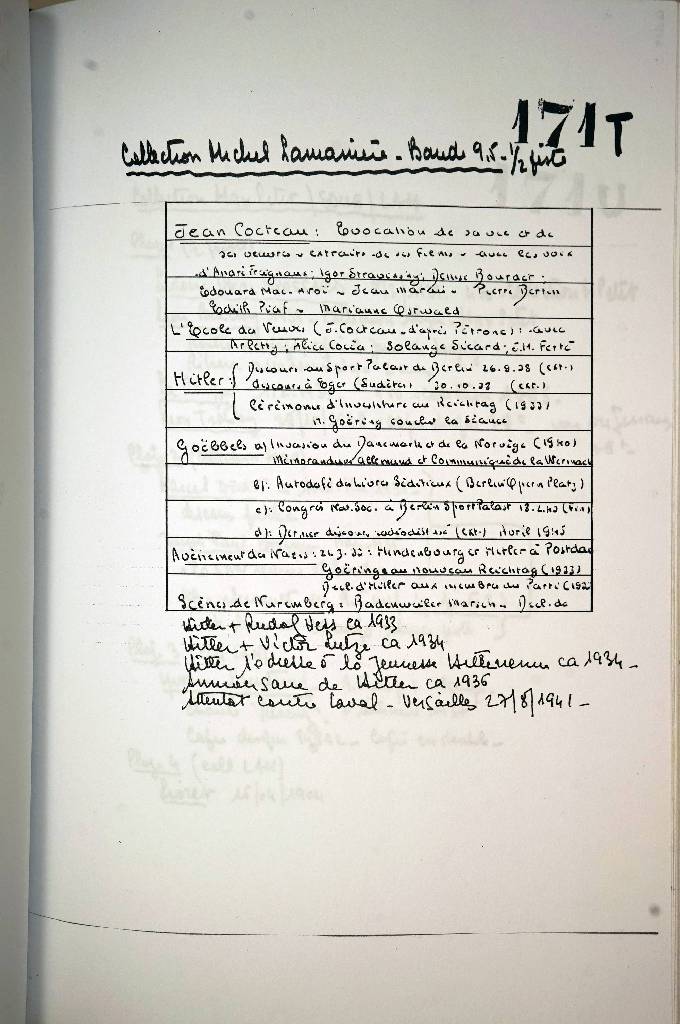 171T
Collection Michel Lamanière - Bande 9,5 - 1/2 piste
Jean Cocteau : Evocation de sa vie et de
ses oeuvres - extraits de ses films - avec les voix
d'André Fraigneau; Igor Stravinsky; Denise Bourdet;
Edouard Mac-Avoï - Jean Marais - Pierre Bertin
Edith Piaf - Marianne Oswald
L'Ecole des Veuves (J. Cocteau - d'après Pétrone) : avec
Arletty; Alice Cocéa; Solange Sicard; J.H. Ferté
Hitler : Discours au Sport Palast de Berlin 26.9.38 (ext.)
discours à Eger (Sudètes) 30.10.38 (ext.)
Cérémonie d'Investiture au Reichtag (1933)
M. Goëring conclut la séance
Goëbbels a) Invasion du Danemark et de la Norvège (1940)
Mémorandum allemand et Communiqué de la Wermach
b): Autodafé de livres Séditieux (Berlin Opern Platz)
c): Congrès Nat. Soc. à Berlin Sport Palast 18.2.43 (fin)
d): Dernier discours radiodiffusé (ext.) Avril 1945
Avènement des Nazis : 21.3.33 : Hindenbourg et Hitler à Postdam
Goëring au nouveau Reichtag (1933)
Decl. d'Hitler aux membres du Parti (1933
Scènes de Nuremberg : Badenweiler Marsch - Decl. de
Hitler + Rudolf Hess ca 1933
Hitler + Victor Lutze ca 1934
Hitler s'adresse à la Jeunesse Hitlerienne ca 1934 -
Anniversaire de Hitler ca 1936
Attentat contre Laval - Versailles 27/8/1941 -